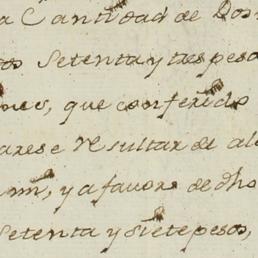 a Cantidad de Dos
tos Setenta y tres peso
nes, que conferido
arese resultar de al
mi, y a favor de dho
Setenta y siete pesos,